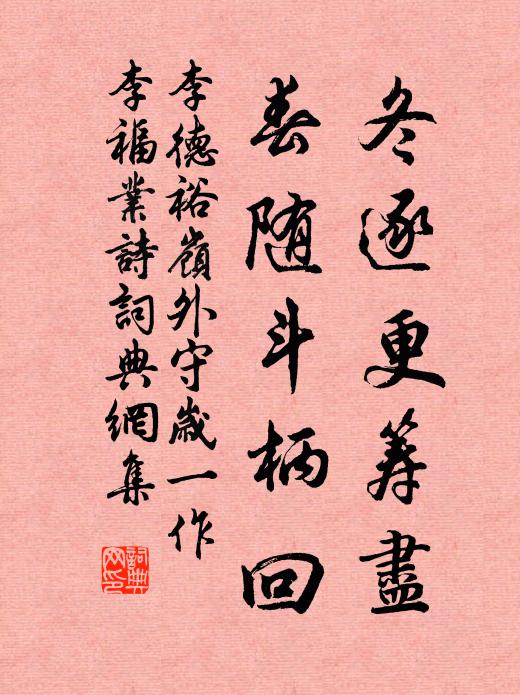 冬逐更筹盡
春随斗柄回
李德裕嶺外守歲一作
李福業詩詞典網集
詞典网印